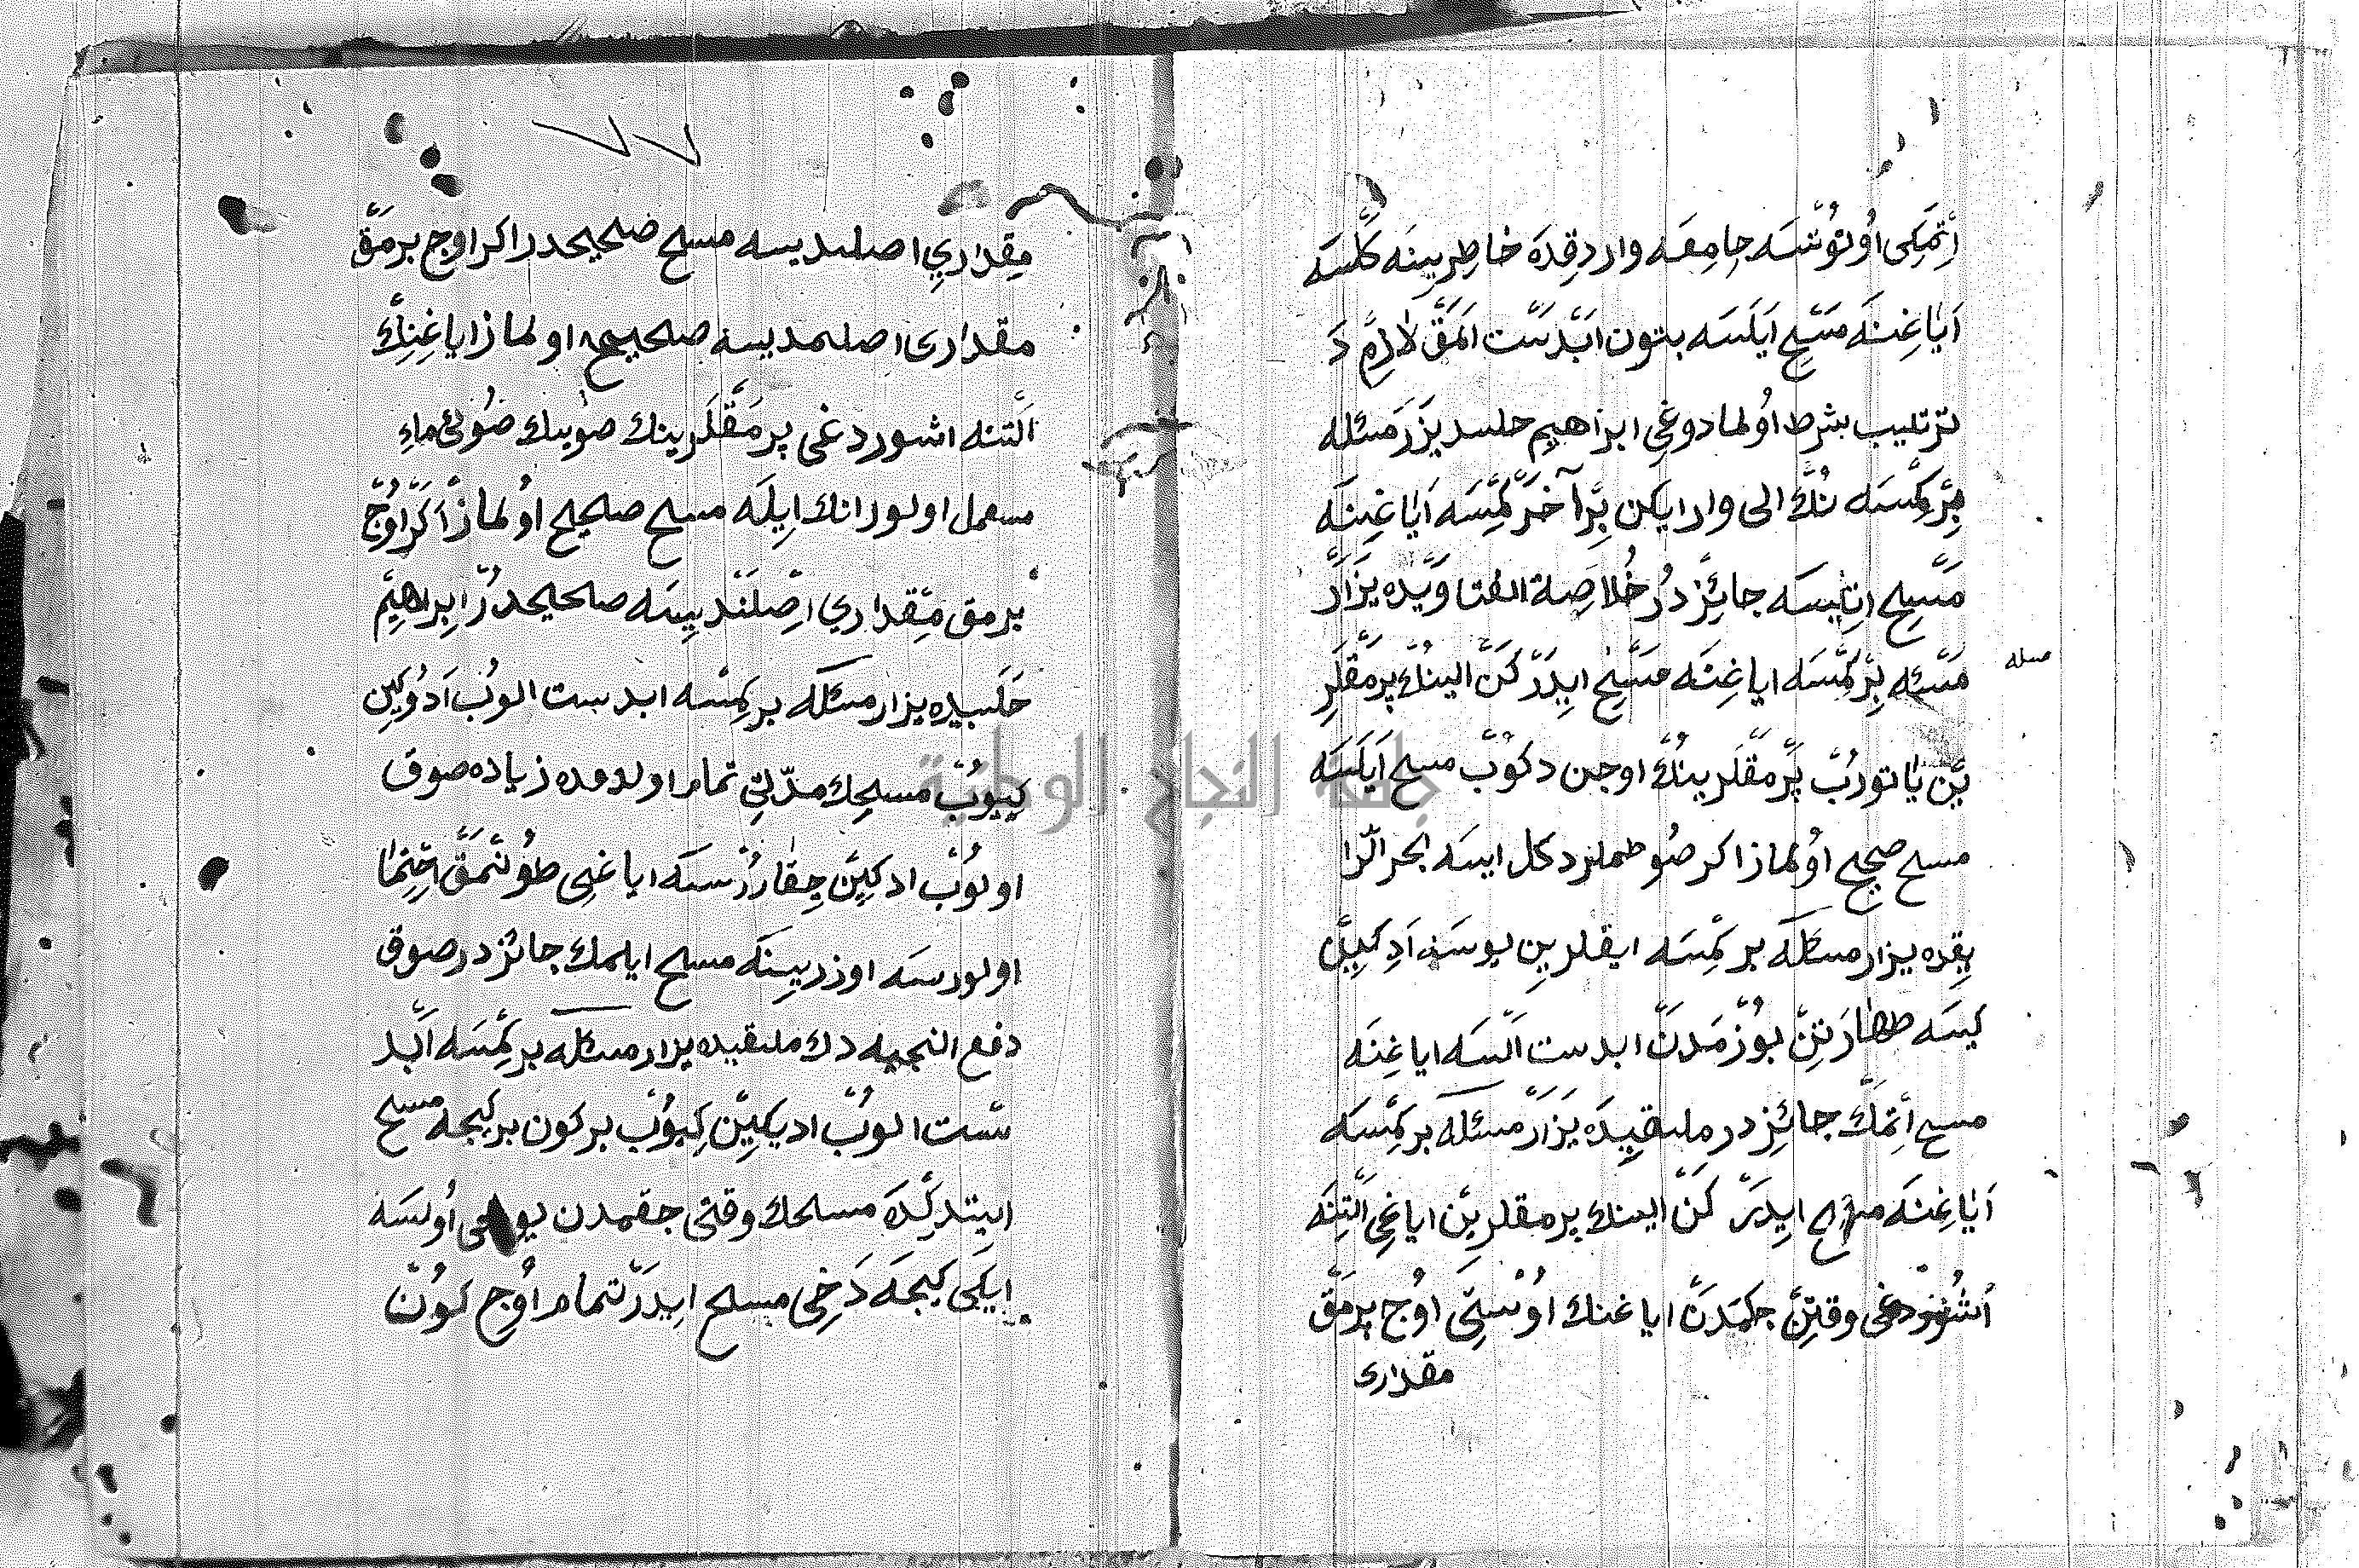 اِتمَكِى اُونُوتسَه جامِعَه واردِقدَه خاطِرِينَه كَلسَه
اَياغِنَه مَسحِ اَيلَسَه بتون اَبدَست اَلمَق لازِم دَ
ترتيب بشرط اوُلمادوغى ابراهيم حلبيد يَزَر مَسئله
بِركمِسَه نُك الى وار ايكن بِر آخَر كِمسَه اَياغِينَه
مَسحِ اِتيسَه جائِز دُر خُلاصة الفتاوَيده يَزار
مَسئله بِر كِمسَه اياغِنَه مَسحِ ايدَركَن الينُك پرمَقلَرِ
يَن ياتورُب پرمقلَرينُك اوجن دكوب مسح اَيلَسَه
مسح صحيح اوُلماز اكر صُو طملر دكل ايسه بحر الرا
يقده يزار مسئله بر كمسَه ايقلرين يوسَه اَدِكِين
كيسَه طهارَتِن بوُزمَدن ابدست اَلسَه اياغِنَه
مسح اِتمَك جائِز در ملتقيدَه يَزار مسئله بر كِمسَه
مسله
اَياغِنَه مسح ايدَر كَن الينك پرمقلرين اياغِى اَلتِنَه
اَشُوردغى وقتِن چكمَدن اياغنك اوُستِى اوُچ پرمَق
مقدارى
٧٧
مِقدارِي اصلنديسه مسح صحيحدر اكر اوچ برمَق
مقدارى اصلمديسه صحيح اولماز اياغِنِك
اَلتنه اشوردغى پرمَقلَرينك صوُيىك صُوئى ماءِ
مستعمل اولور انك ايلَه مسح صحيح اوُلماز اَكَر اوُچ
برمق مِقداري اِصلَنديسَه صحيحدُر اِبراهِيم
حَلَبيده يزار مسئله بر كِمسَه ابدست الوُب اَدوُكِين
كيِيوُب مسحِك مدّتى تمام اولدوده زياده صوق
اولوُب ادكِين چِقارُرسَه اياغِى طوُنمَق اِحتِما
اولورسَه اوزرينَه مسح ايلمك جائز در صوق
دفع التجيه دك ملتقيده يزار مسئله بر كِمسَه اَبد
ست الوُب اديكِين كيوُب بر كون بر كيجه مسح
ايتدكدَه مسحك وقتى چقمدن يولجى اُولسَه
ايكَى كيجَه دَخِى مسح ايدَر تمام اُوچ كوُن